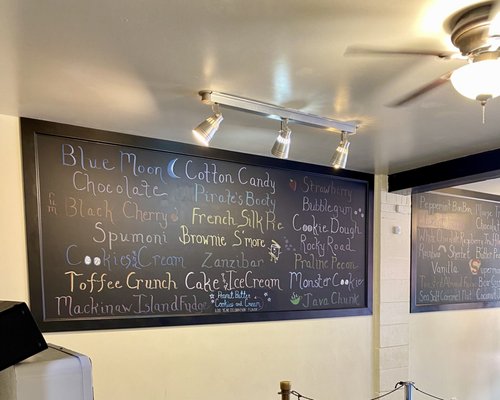 Blue Moon
Chocolate
Black Cherry
Spumoni
Cookies & Cream
Toffee Crunch
Mackinaw Island Fudge
Cotton Candy
Pirate's Booty
French Silk Pie
Brownie S'more
Zanzibar
Cake & Ice Cream
Peanut Butter
Cookies and Cream
Strawberry
Bubblegum
Cookie Dough
Rocky Road
Praline Pecan
Monster Cookie
Java Chunk
Peppermint BonBon
White
Raspberry
Sherbet
Vanilla
Sea Salt Caramel